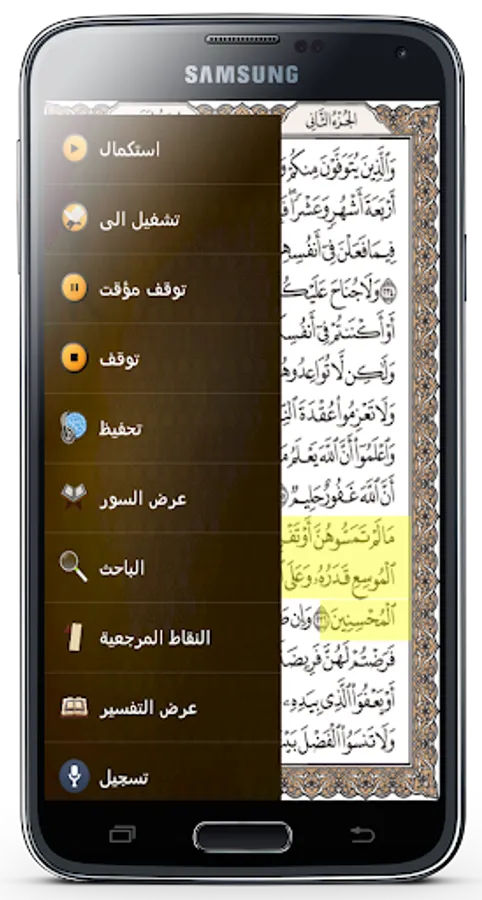 SAMSUNG
الجزء الثاني
استكمال
تشغيل الى
توقف مؤقت
توقف
تحفيظ
عرض السور
الباحث
النقاط المرجعية
عرض التفسير
تسجيل
وَٱلَّذِينَ يُتَوَفَّوْنَ مِنكُمْ
أَرْبَعَةَ أَشْهُرٍ وَعَشْرًا
فِيمَا فَعَلْنَ فِىٓ أَنفُسِهِ
٢٣٤ وَلَا جُنَاحَ عَلَيْكُ
أَوْ أَكْنَنتُمْ فِىٓ أَنفُسِ
وَلَٰكِن لَّا تُوَاعِدُوهُ
وَلَا تَعْزِمُوا۟ عُقْدَةَ
وَٱعْلَمُوٓا۟ أَنَّ ٱللَّهَ يَعْلَمُ
أَنَّ ٱللَّهَ غَفُورٌ حَلِيمٌ
مَا لَمْ تَمَسُّوهُنَّ أَوْ تَفْ
ٱلْمُوسِعِ قَدَرُهُۥ وَعَلَى
ٱلْمُحْسِنِينَ ٢٣٦ وَإِن
فَرَضْتُمْ لَهُنَّ فَرِيضَ
أَوْ يَعْفُوَا۟ ٱلَّذِى بِيَدِهِۦ
وَلَا تَنسَوُا۟ ٱلْفَضْلَ بَيْ